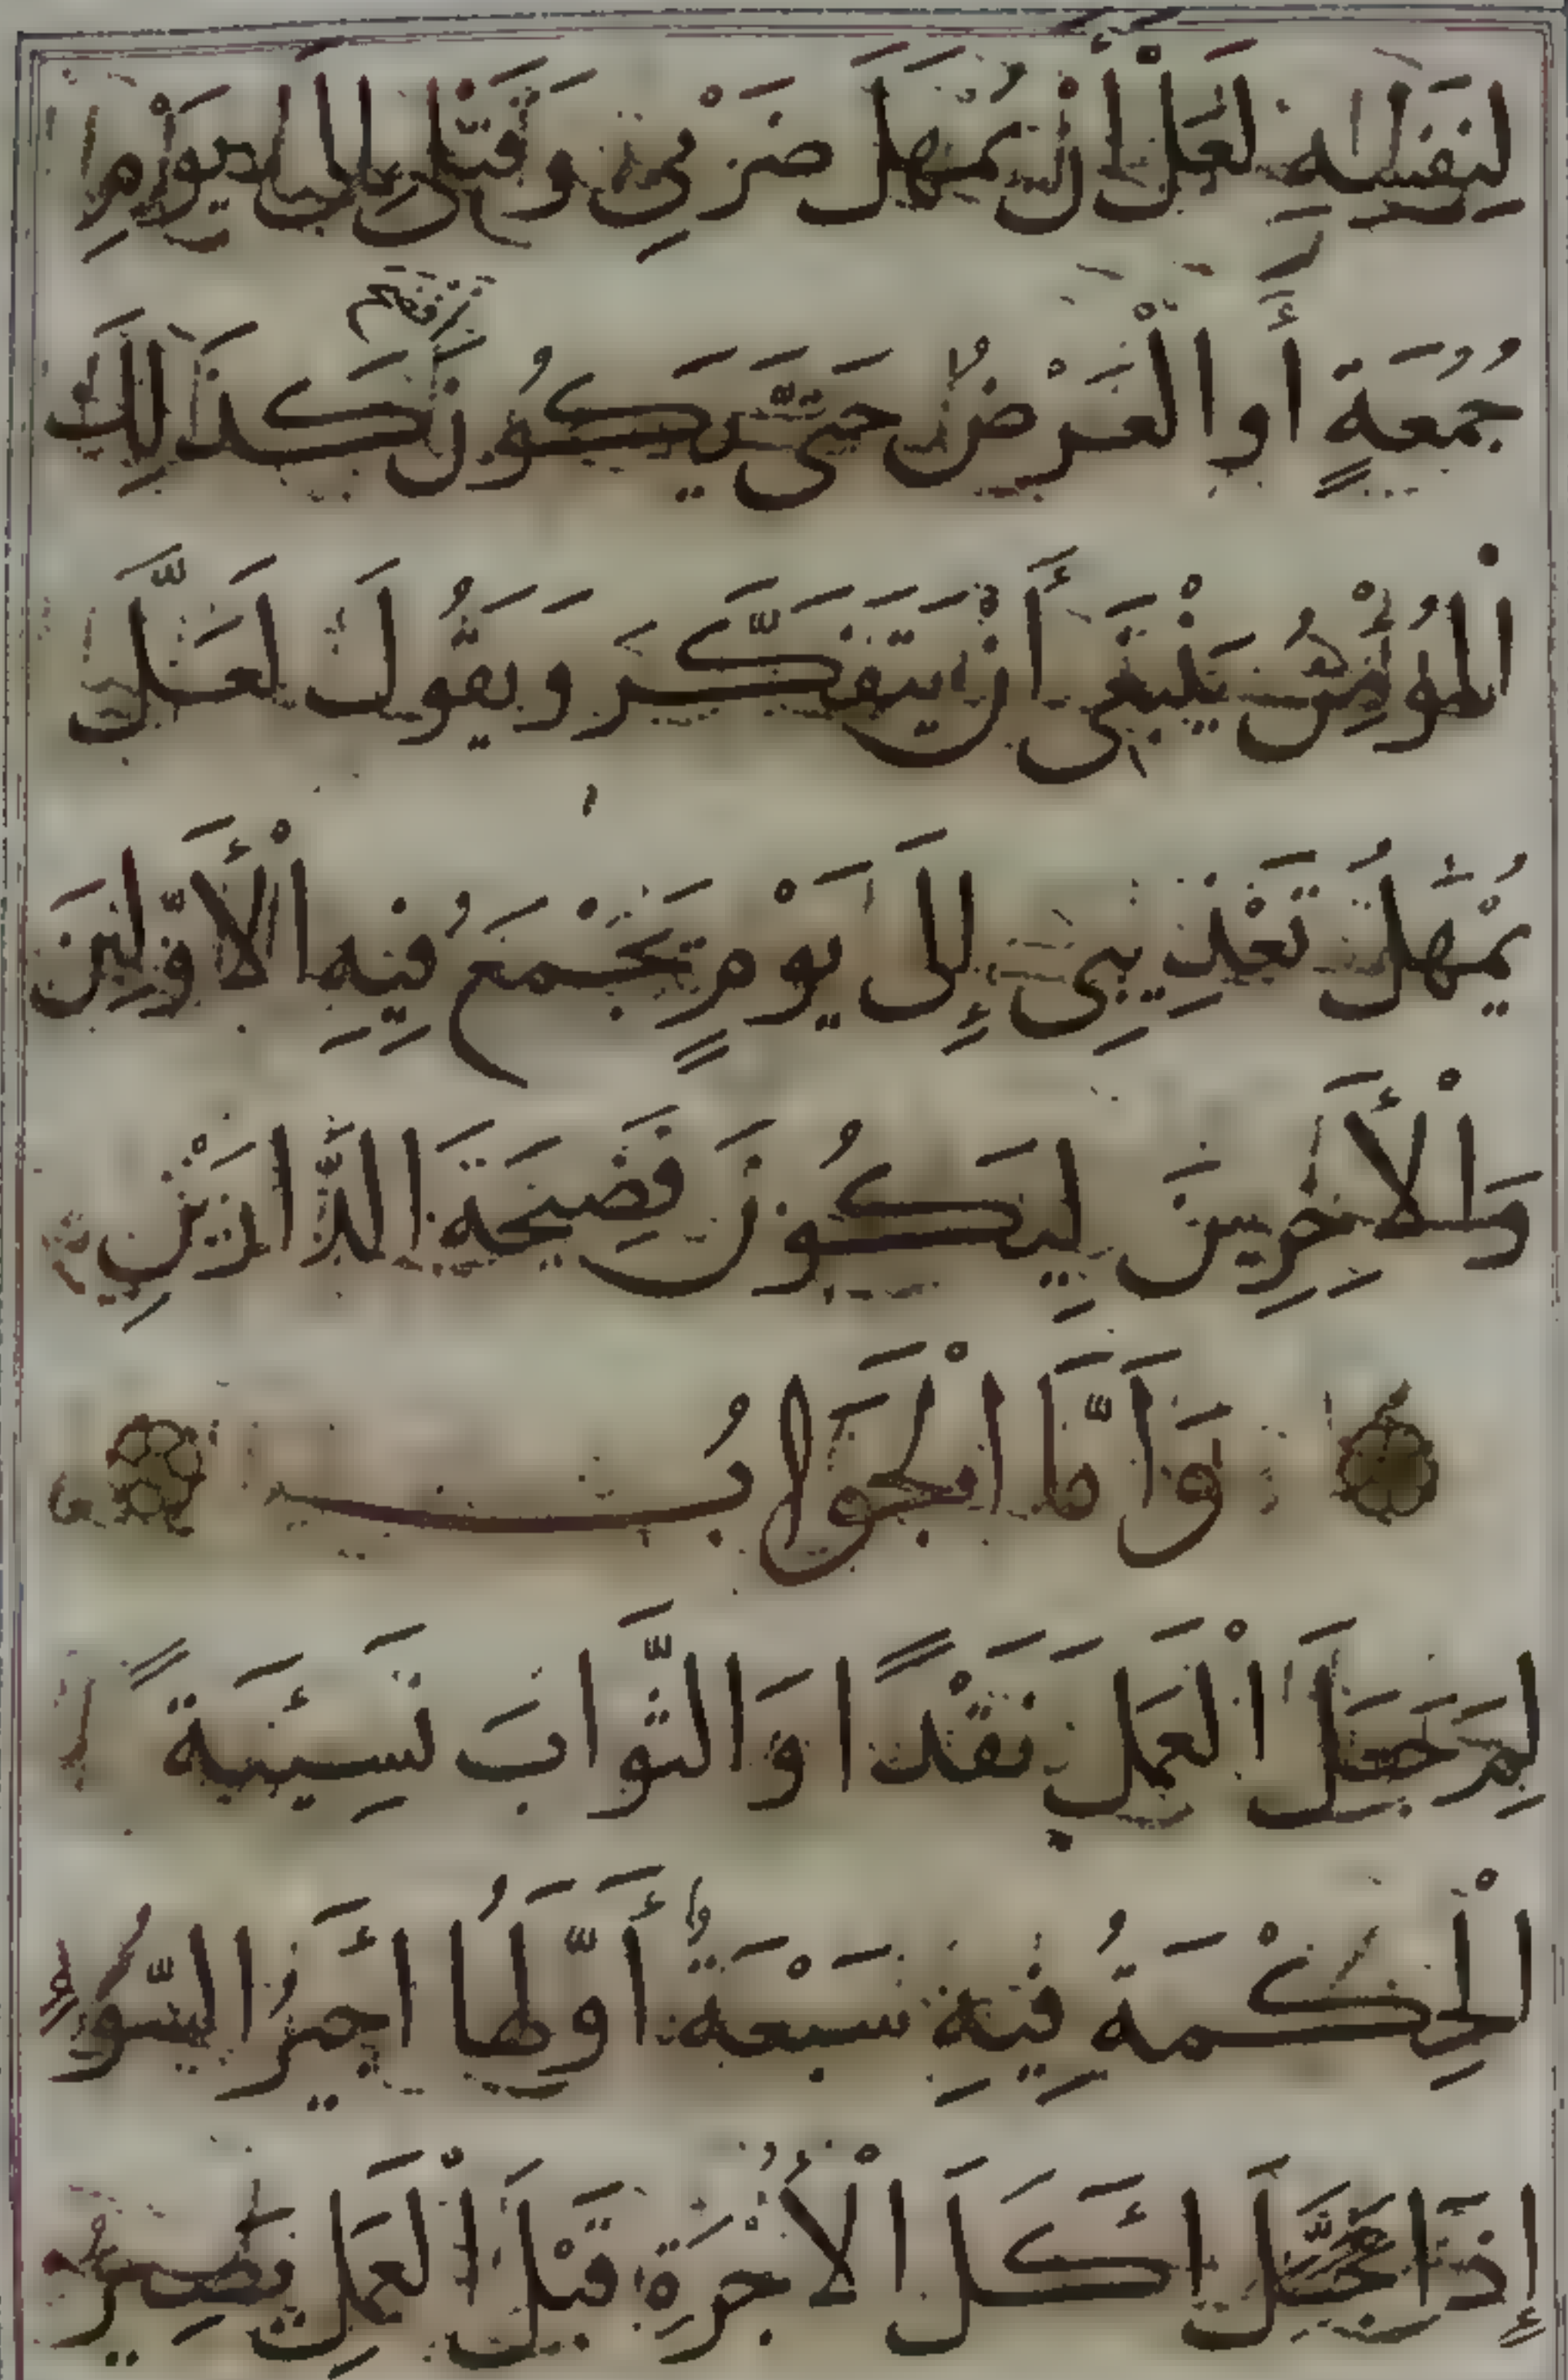 لِنَفْسِهِ لَعَلَّ أَنْ يُمْهَلَ ضَرْبِي وَقَتْلِي إِلَى يَوْمِ
جُمُعَةٍ أَوِ الْعَرْضُ حَتَّى يَكُونَ كَذَلِكَ
افضح
الْمُؤْمِنُ يَنْبَغِي أَنْ يَتَفَكَّرَ وَيَقُولَ لَعَلَّ
يُمْهَلُ تَعْذِيبِي إِلَى يَوْمٍ تَجْمَعُ فِيهِ الْأَوَّلِينَ
وَالْأَخِرِينَ لِيَكُونَ فَضِيحَةَ الدَّارَيْنِ
وَأَمَّا الْجَوَابُ
لِمَ جَعَلَ الْعَمَلَ نَقْدًا وَالثَّوَابَ نَسِيئَةً
الْحِكْمَةُ فِيهِ سَبْعَةٌ أَوَّلُهَا أَجِيرُ السُّوءِ
إِذَا عَجَّلَ اكَلَ الْأُجْرَةِ قَبْلَ الْعَمَلِ يَصِيرُ